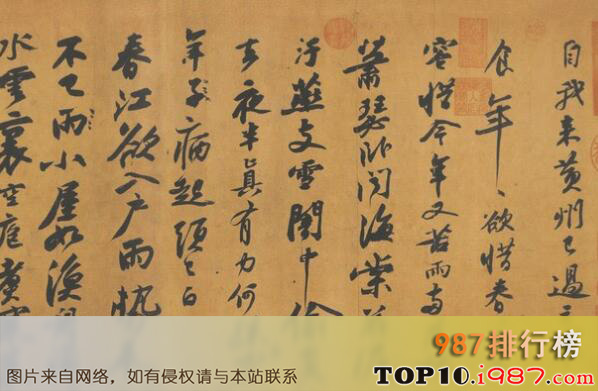 自我来黄州已過
食年〻欲惜春
容惜今年又苦雨兩
蕭瑟卧聞海棠
汙燕支雪闇中偷
去夜半真有力何
年子病起頭已白
春江欲入户雨勢
不已雨小屋如漁
水雲裏空庖煮寒
987排行榜
图片来自网络，如有侵权请与本站联系
TOP10.i987.com